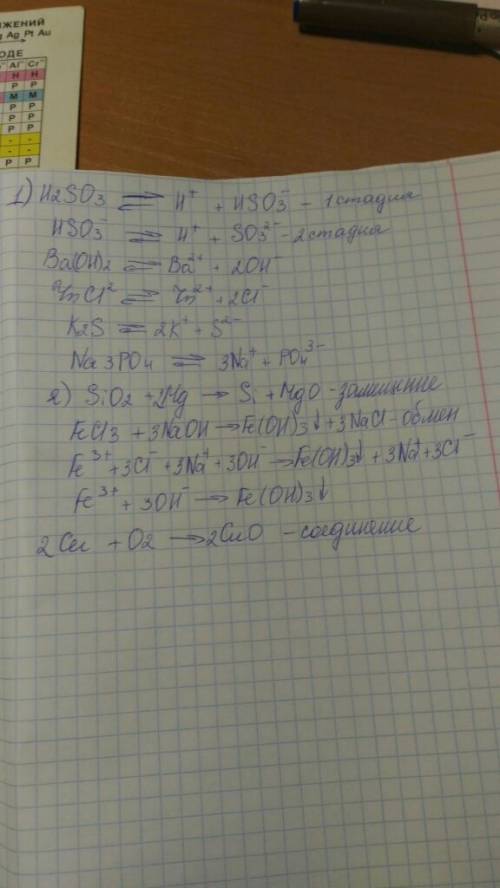 ЖЕНИЙ
Ag Pt Au
ОДЕ
Al³⁺ Cr³⁺
Н Н
Р Р
М М
Р Р
Р
Р Р
- -
- -
Р Р
1) H2SO3 ⇌ H⁺ + HSO3⁻ - 1 стадия
HSO3⁻ ⇌ H⁺ + SO3²⁻ - 2 стадия
Ba(OH)2 ⇌ Ba²⁺ + 2OH⁻
ZnCl² ⇌ Zn²⁺ + 2Cl⁻
K2S ⇌ 2K⁺ + S²⁻
Na3PO4 ⇌ 3Na⁺ + PO4³⁻
2) SiO2 + 2Mg → Si + MgO - замещение
FeCl3 + 3NaOH → Fe(OH)3↓ + 3NaCl - обмен
Fe³⁺ + 3Cl⁻ + 3Na⁺ + 3OH⁻ → Fe(OH)3↓ + 3Na⁺ + 3Cl⁻
Fe³⁺ + 3OH⁻ → Fe(OH)3↓
2Cu + O2 → 2CuO - соединение